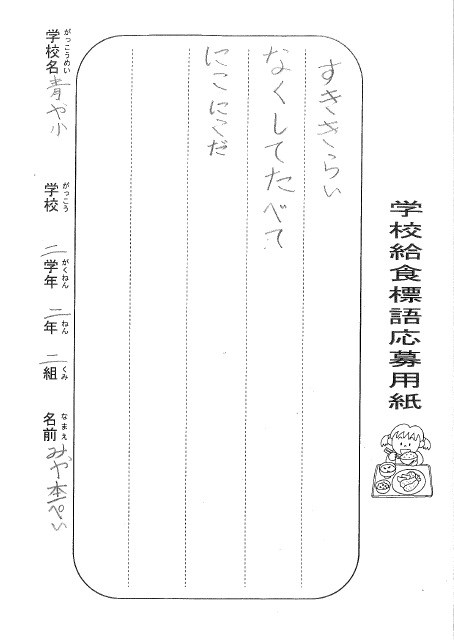 学校給食標語応募用紙
すききらい
なくしてたべて
にこにこだ
がっこうめい がっこう がくねん ねん くみ なまえ
学校名 青や小 学校 二学年 二年 二組 名前 みや本一ぺい